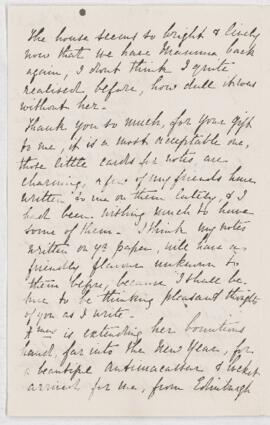 The house seems so bright & lively
now that we have Mamma back
again, I don't think I quite
realised before, how dull it was
without her.
Thank you so much, for your gift
to me, it is a most acceptable one,
those little cards for notes, are
charming, a few of my friends have
written to me on them lately, & I
had been wishing much to have
some of them. I think my notes
written on yr paper, will have a
friendly flavour unknown to
them before, because I shall be
sure to be thinking pleasant thoughts
of you as I write.
Xmas is extending her bounteous
hand, far into the New Year, for
a beautiful antimacassar & locket
arrived for me, from Edinburgh